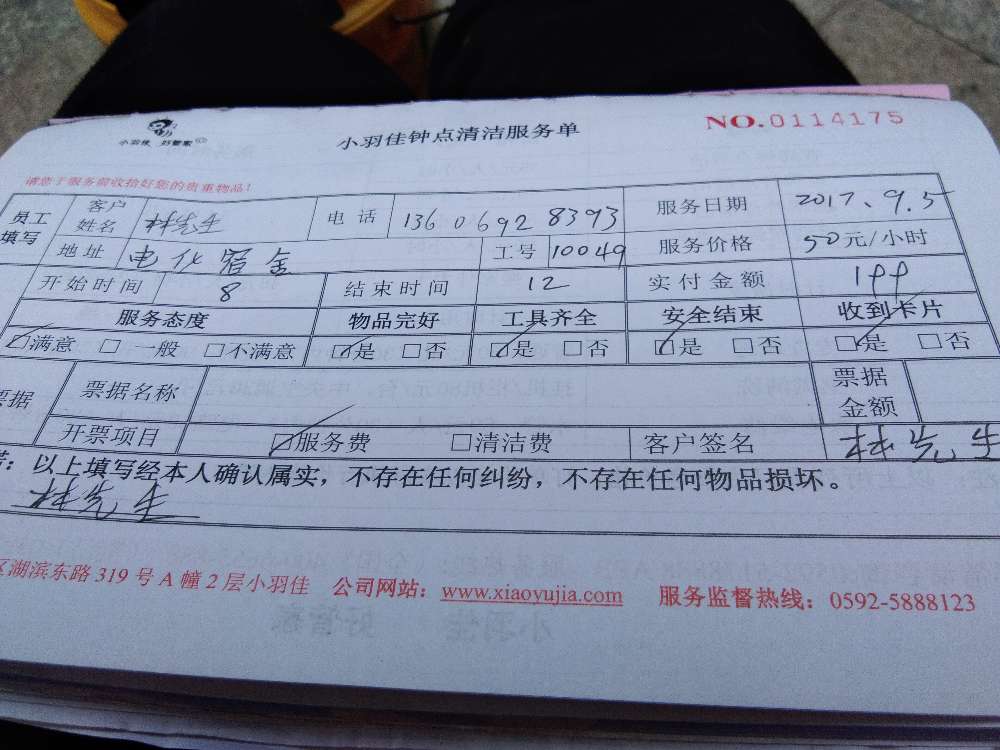 小羽佳 好管家
小羽佳钟点清洁服务单
NO.0114175
请您于服务前收拾好您的贵重物品！
员工填写 客户姓名 林先生 电话 136 0692 8393 服务日期 2017、9.5
地址 电化宿舍 工号 10049 服务价格 50元/小时
开始时间 8 结束时间 12 实付金额
服务态度 物品完好 工具齐全 安全结束 收到卡片
☑满意 □一般 □不满意 ☑是 □否 ☑是 □否 ☑是 □否 ☑是 □否
据 票据名称 票据金额
开票项目 ☑服务费 □清洁费 客户签名 林先生
：以上填写经本人确认属实，不存在任何纠纷，不存在任何物品损坏。
林先生
区湖滨东路 319 号 A 幢 2 层小羽佳 公司网站：www.xiaoyujia.com 服务监督热线：0592-5888123